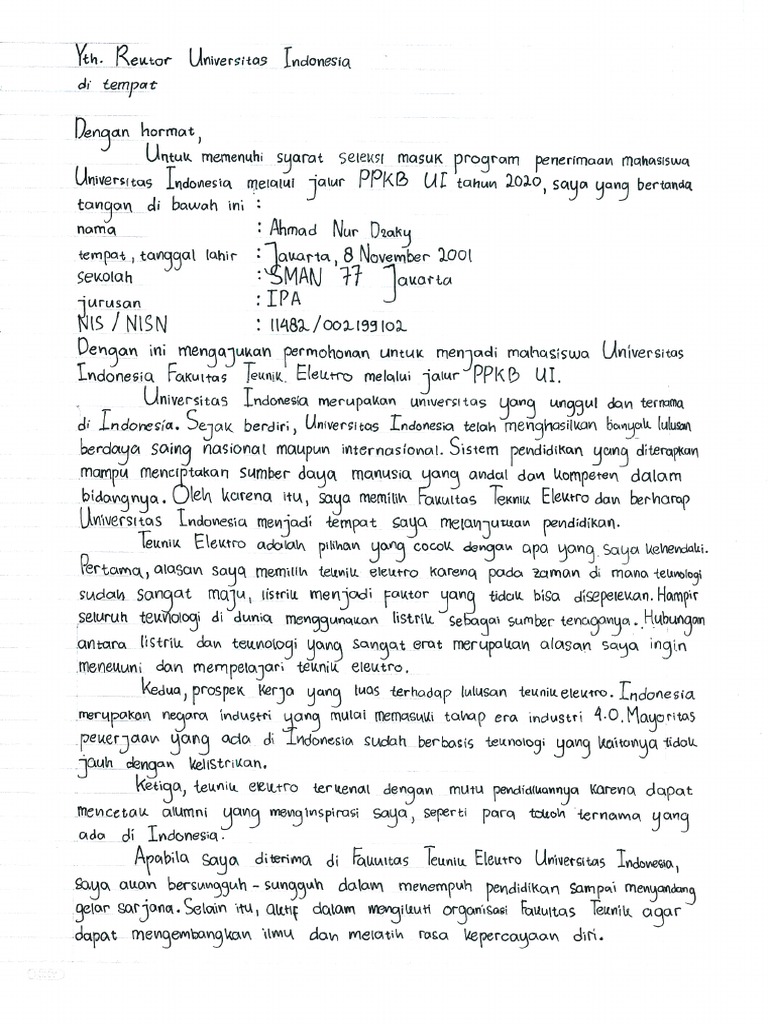 Yth. Rektor Universitas Indonesia
di tempat
Dengan hormat,
Untuk memenuhi syarat seleksi masuk program penerimaan mahasiswa
Universitas Indonesia melalui jalur PPKB UI tahun 2020, saya yang bertanda
tangan di bawah ini :
nama : Ahmad Nur Dzaky
tempat, tanggal lahir : Jakarta, 8 November 2001
sekolah : SMAN 77 Jakarta
jurusan : IPA
NIS / NISN : 11482/002199102
Dengan ini mengajukan permohonan untuk menjadi mahasiswa Universitas
Indonesia Fakultas Teknik Elektro melalui jalur PPKB UI.
Universitas Indonesia merupakan universitas yang unggul dan ternama
di Indonesia. Sejak berdiri, Universitas Indonesia telah menghasilkan banyak lulusan
berdaya saing nasional maupun internasional. Sistem pendidikan yang diterapkan
mampu menciptakan sumber daya manusia yang andal dan kompeten dalam
bidangnya. Oleh karena itu, saya memilih Fakultas Teknik Elektro dan berharap
Universitas Indonesia menjadi tempat saya melanjutkan pendidikan.
Teknik Elektro adalah pilihan yang cocok dengan apa yang saya kehendaki.
Pertama, alasan saya memilih teknik elektro karena pada zaman di mana teknologi
sudah sangat maju, listrik menjadi faktor yang tidak bisa disepelekan. Hampir
seluruh teknologi di dunia menggunakan listrik sebagai sumber tenaganya. Hubungan
antara listrik dan teknologi yang sangat erat merupakan alasan saya ingin
menekuni dan mempelajari teknik elektro.
Kedua, prospek kerja yang luas terhadap lulusan teknik elektro. Indonesia
merupakan negara industri yang mulai memasuki tahap era industri 4.0. Mayoritas
pekerjaan yang ada di Indonesia sudah berbasis teknologi yang kaitanya tidak
jauh dengan kelistrikan.
Ketiga, teknik elektro terkenal dengan mutu pendidikannya karena dapat
mencetak alumni yang menginspirasi saya, seperti para tokoh ternama yang
ada di Indonesia.
Apabila saya diterima di Fakultas Teknik Elektro Universitas Indonesia,
saya akan bersungguh-sungguh dalam menempuh pendidikan sampai menyandang
gelar sarjana. Selain itu, aktif dalam mengikuti organisasi Fakultas Teknik agar
dapat mengembangkan ilmu dan melatih rasa kepercayaan diri.